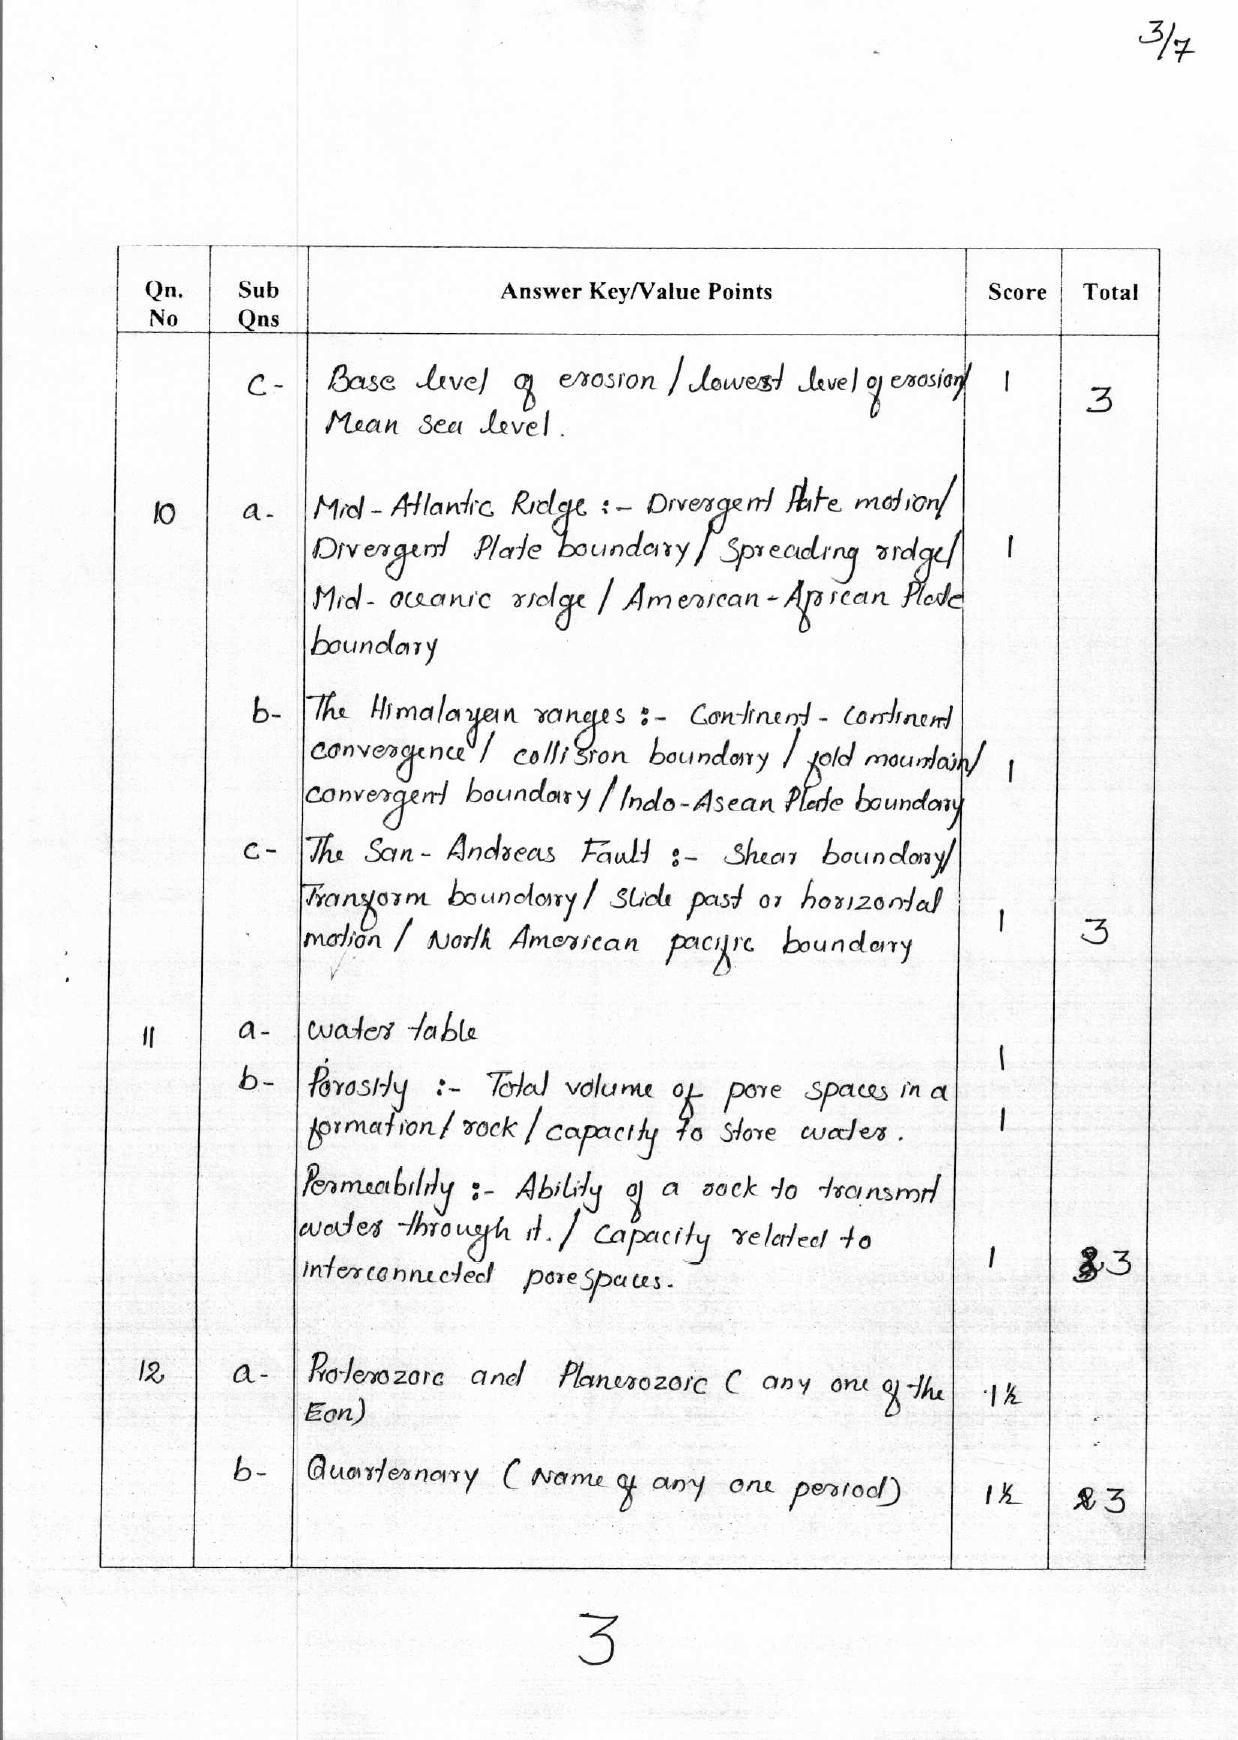 3/7
Qn. No Sub Qns Answer Key/Value Points Score Total
c- Base level of erosion / lowest level of erosion/ 1 3
Mean sea level.
10 a- Mid-Atlantic Ridge :- Divergent Plate motion/
Divergent Plate boundary/ Spreading ridge/ 1
Mid-oceanic ridge / American-African Plate
boundary
b- The Himalayan ranges :- Continent - continent
convergence / collision boundary / fold mountain/ 1
convergent boundary / Indo-Asean Plate boundary
c- The San-Andreas Fault :- Shear boundary/
Transform boundary/ Slide past or horizontal 1
motion / North American pacific boundary 3
11 a- water table 1
b- Porosity :- Total volume of pore spaces in a
formation/ rock / capacity to store water. 1
Permeability :- Ability of a rock to transmit
water through it. / capacity related to 1 3
interconnected pore spaces.
12 a- Proterozoic and Planerozoic ( any one of the 1½
Eon)
b- Quarternary ( Name of any one period) 1½ 3
3